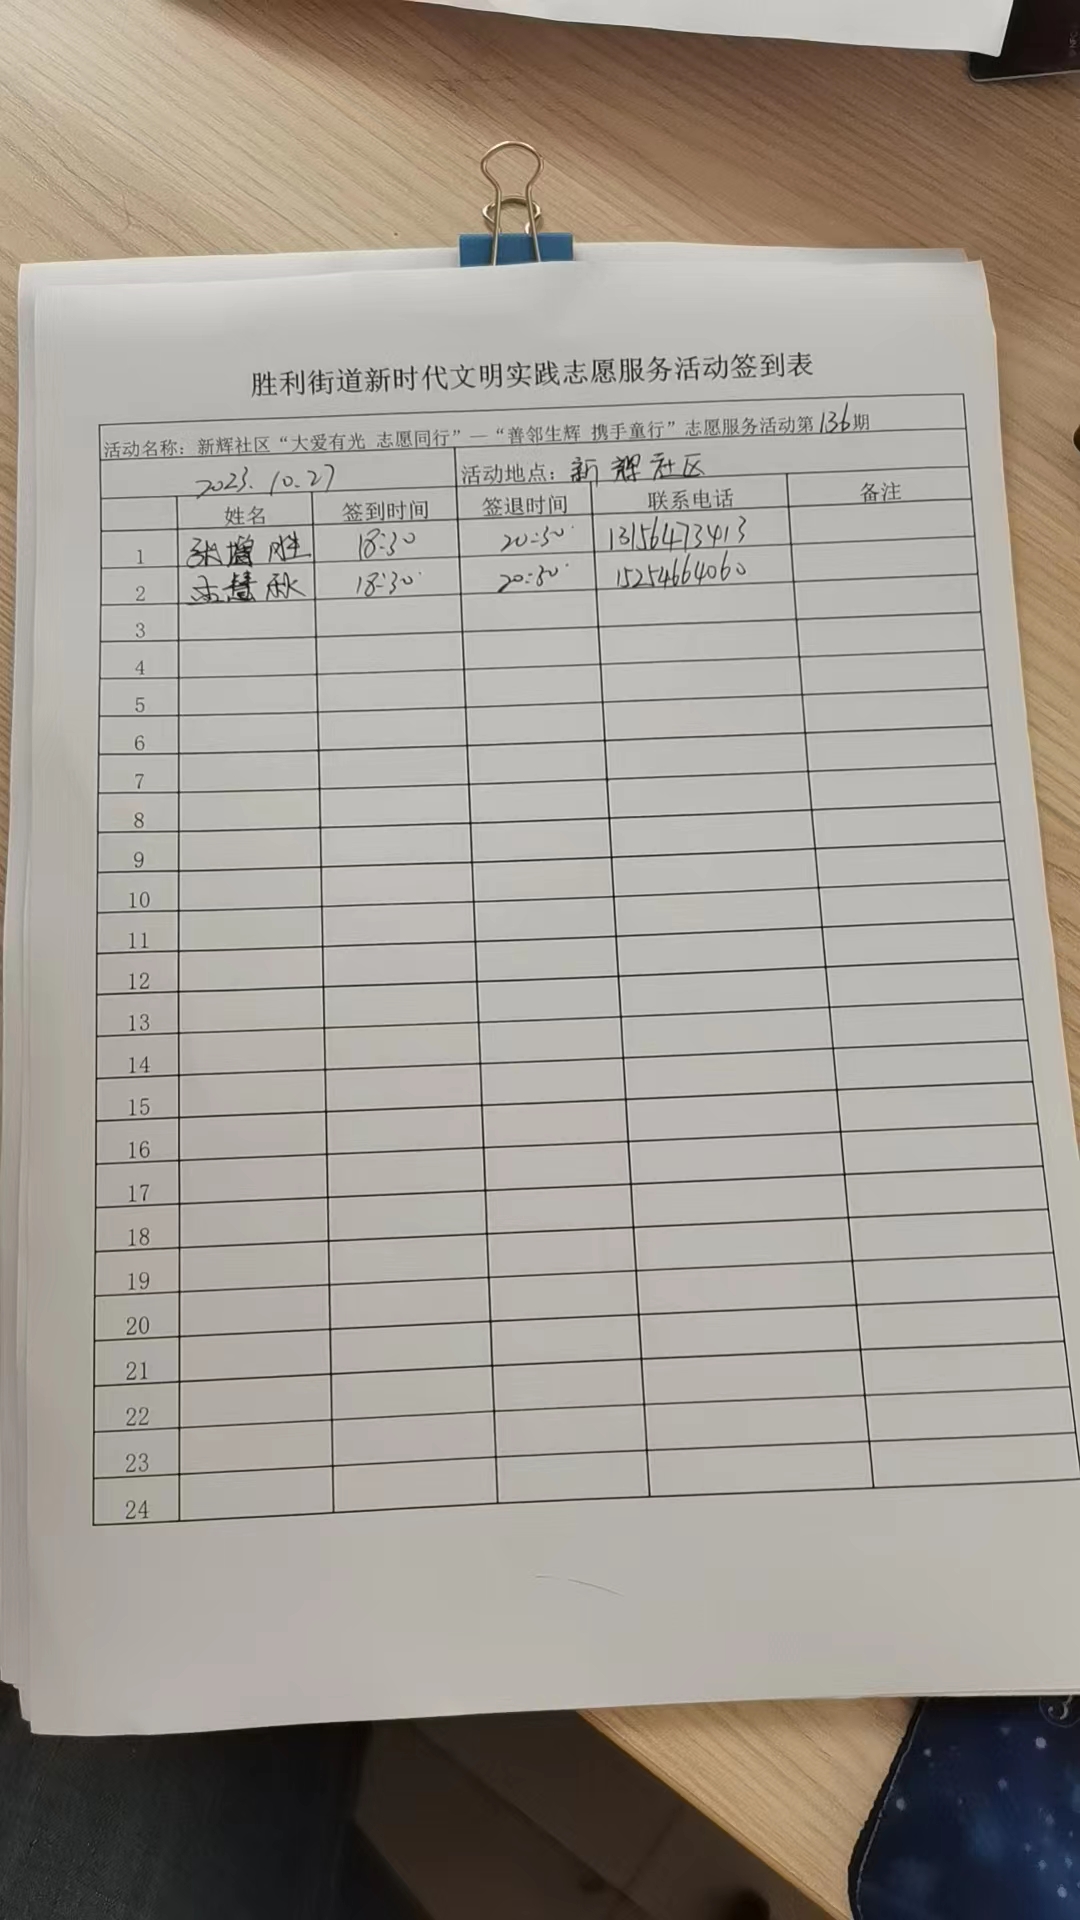 胜利街道新时代文明实践志愿服务活动签到表
活动名称：新辉社区“大爱有光 志愿同行”—“善邻生辉 携手童行”志愿服务活动第136期
2023.10.27 活动地点：新辉社区
姓名 签到时间 签退时间 联系电话 备注
1 张增胜 18:30 20:30 13156473413
2 王慧秋 18:30 20:30 15254664060
3
4
5
6
7
8
9
10
11
12
13
14
15
16
17
18
19
20
21
22
23
24